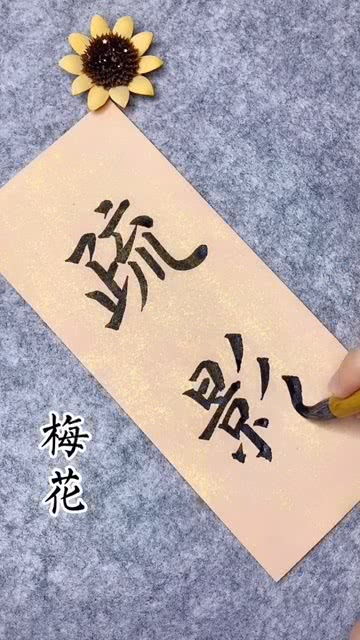 疏影
梅花